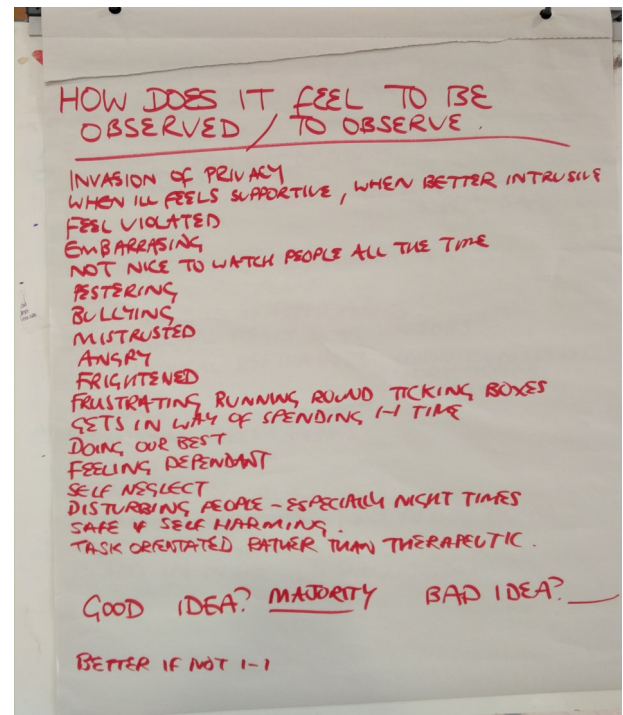 HOW DOES IT FEEL TO BE
OBSERVED / TO OBSERVE.
INVASION OF PRIVACY
WHEN ILL FEELS SUPPORTIVE, WHEN BETTER INTRUSIVE
FEEL VIOLATED
EMBARRASING
NOT NICE TO WATCH PEOPLE ALL THE TIME
PESTERING
BULLYING
MISTRUSTED
ANGRY
FRIGHTENED
FRUSTRATING RUNNING ROUND TICKING BOXES
GETS IN WAY OF SPENDING 1-1 TIME
DOING OUR BEST
FEELING DEPENDANT
SELF NEGLECT
DISTURBING PEOPLE - ESPECIALLY NIGHT TIMES
SAFE IF SELF HARMING.
TASK ORIENTATED RATHER THAN THERAPEUTIC.
GOOD IDEA? MAJORITY BAD IDEA?
BETTER IF NOT 1-1